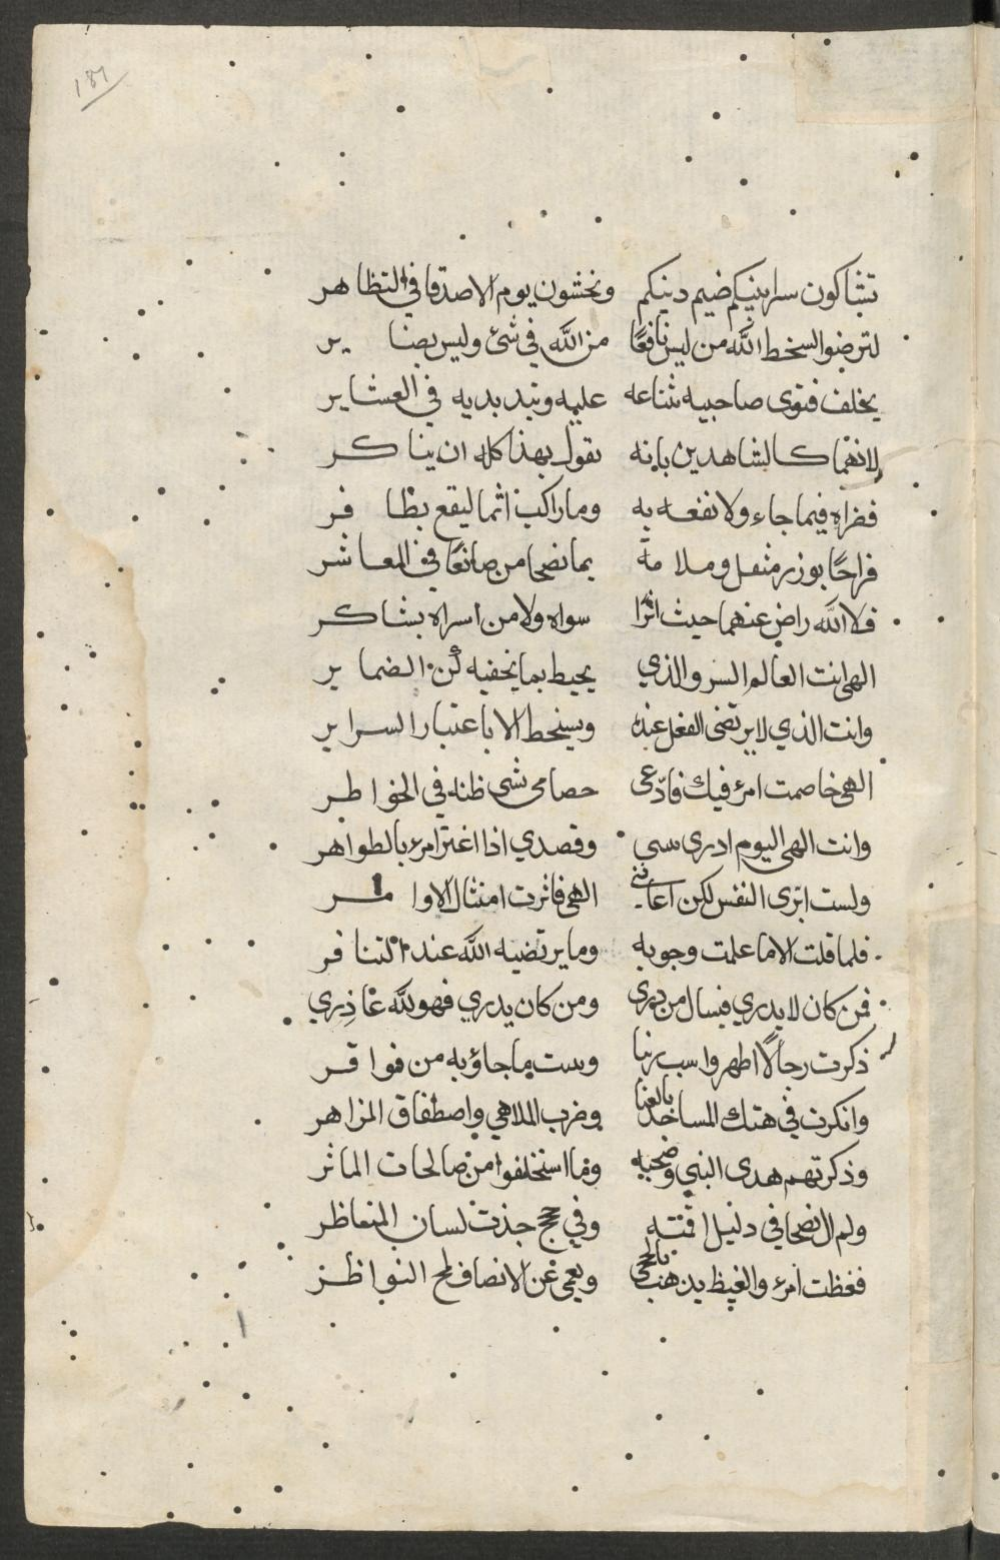 ١٨٦
تشاكون سرا بينكم ضيم دينكم ونخشون يوم الاصدقا في التظاهر
لترضوا لسخط الله من ليس نافعًا من الله في شئ وليس بضاير
يخلف فتوى صاحبيه شناعه عليه وتبد بديه في العشاير
لانهما كالشاهدين بانه نقول بهذا كله ان يناكر
فضراه فيما جاء ولا نفعه به وما راكب اثما ليقع بظافر
فراحًا بوزر مثعل وملامة بما نضحا من صانعًا في المعاشر
فلا الله راض عنهما حيث اثرا سواه ولا من اسراه بشاكر
الهي انت العالم السر والذي يحيط بما نخفيه كن الضماير
وانت الذي لا يرتضى الفعل عنده وسيخط الا باعتبار السراير
الهي خاصمت امرء فيك فادّعى حصامي شى ظنه في الخواطر
وانت الهي اليوم ادرى وقصدي اذا اغتر امرء بالطواهر
ولست ابرى النفس لكن اعانني الهي فاثرت امتثال الاوامر
فلما قلت الا ما علمت وجوبه وما يرتضيه الله عند التنافر
فمن كان لا يدري فيسال من درى ومن كان يدري فهو لله عاذري
ذكرت رجالًا اظهروا سب ربنا وست ما جاؤ به من فواقر
وانكرت في هتك المساجد بالغنا وضرب الملاهي واصطفاق المزاهر
وذكرتهم هدى النبي وصحبه وما استخلفوا من صالحات الماثر
ولم ال نضحا في دليل اقمته وفي حجج جذت لسان المناظر
فغظت امرء والغيظ يذهب بالحجى ويعمي عن الانصاف لمح النواظر